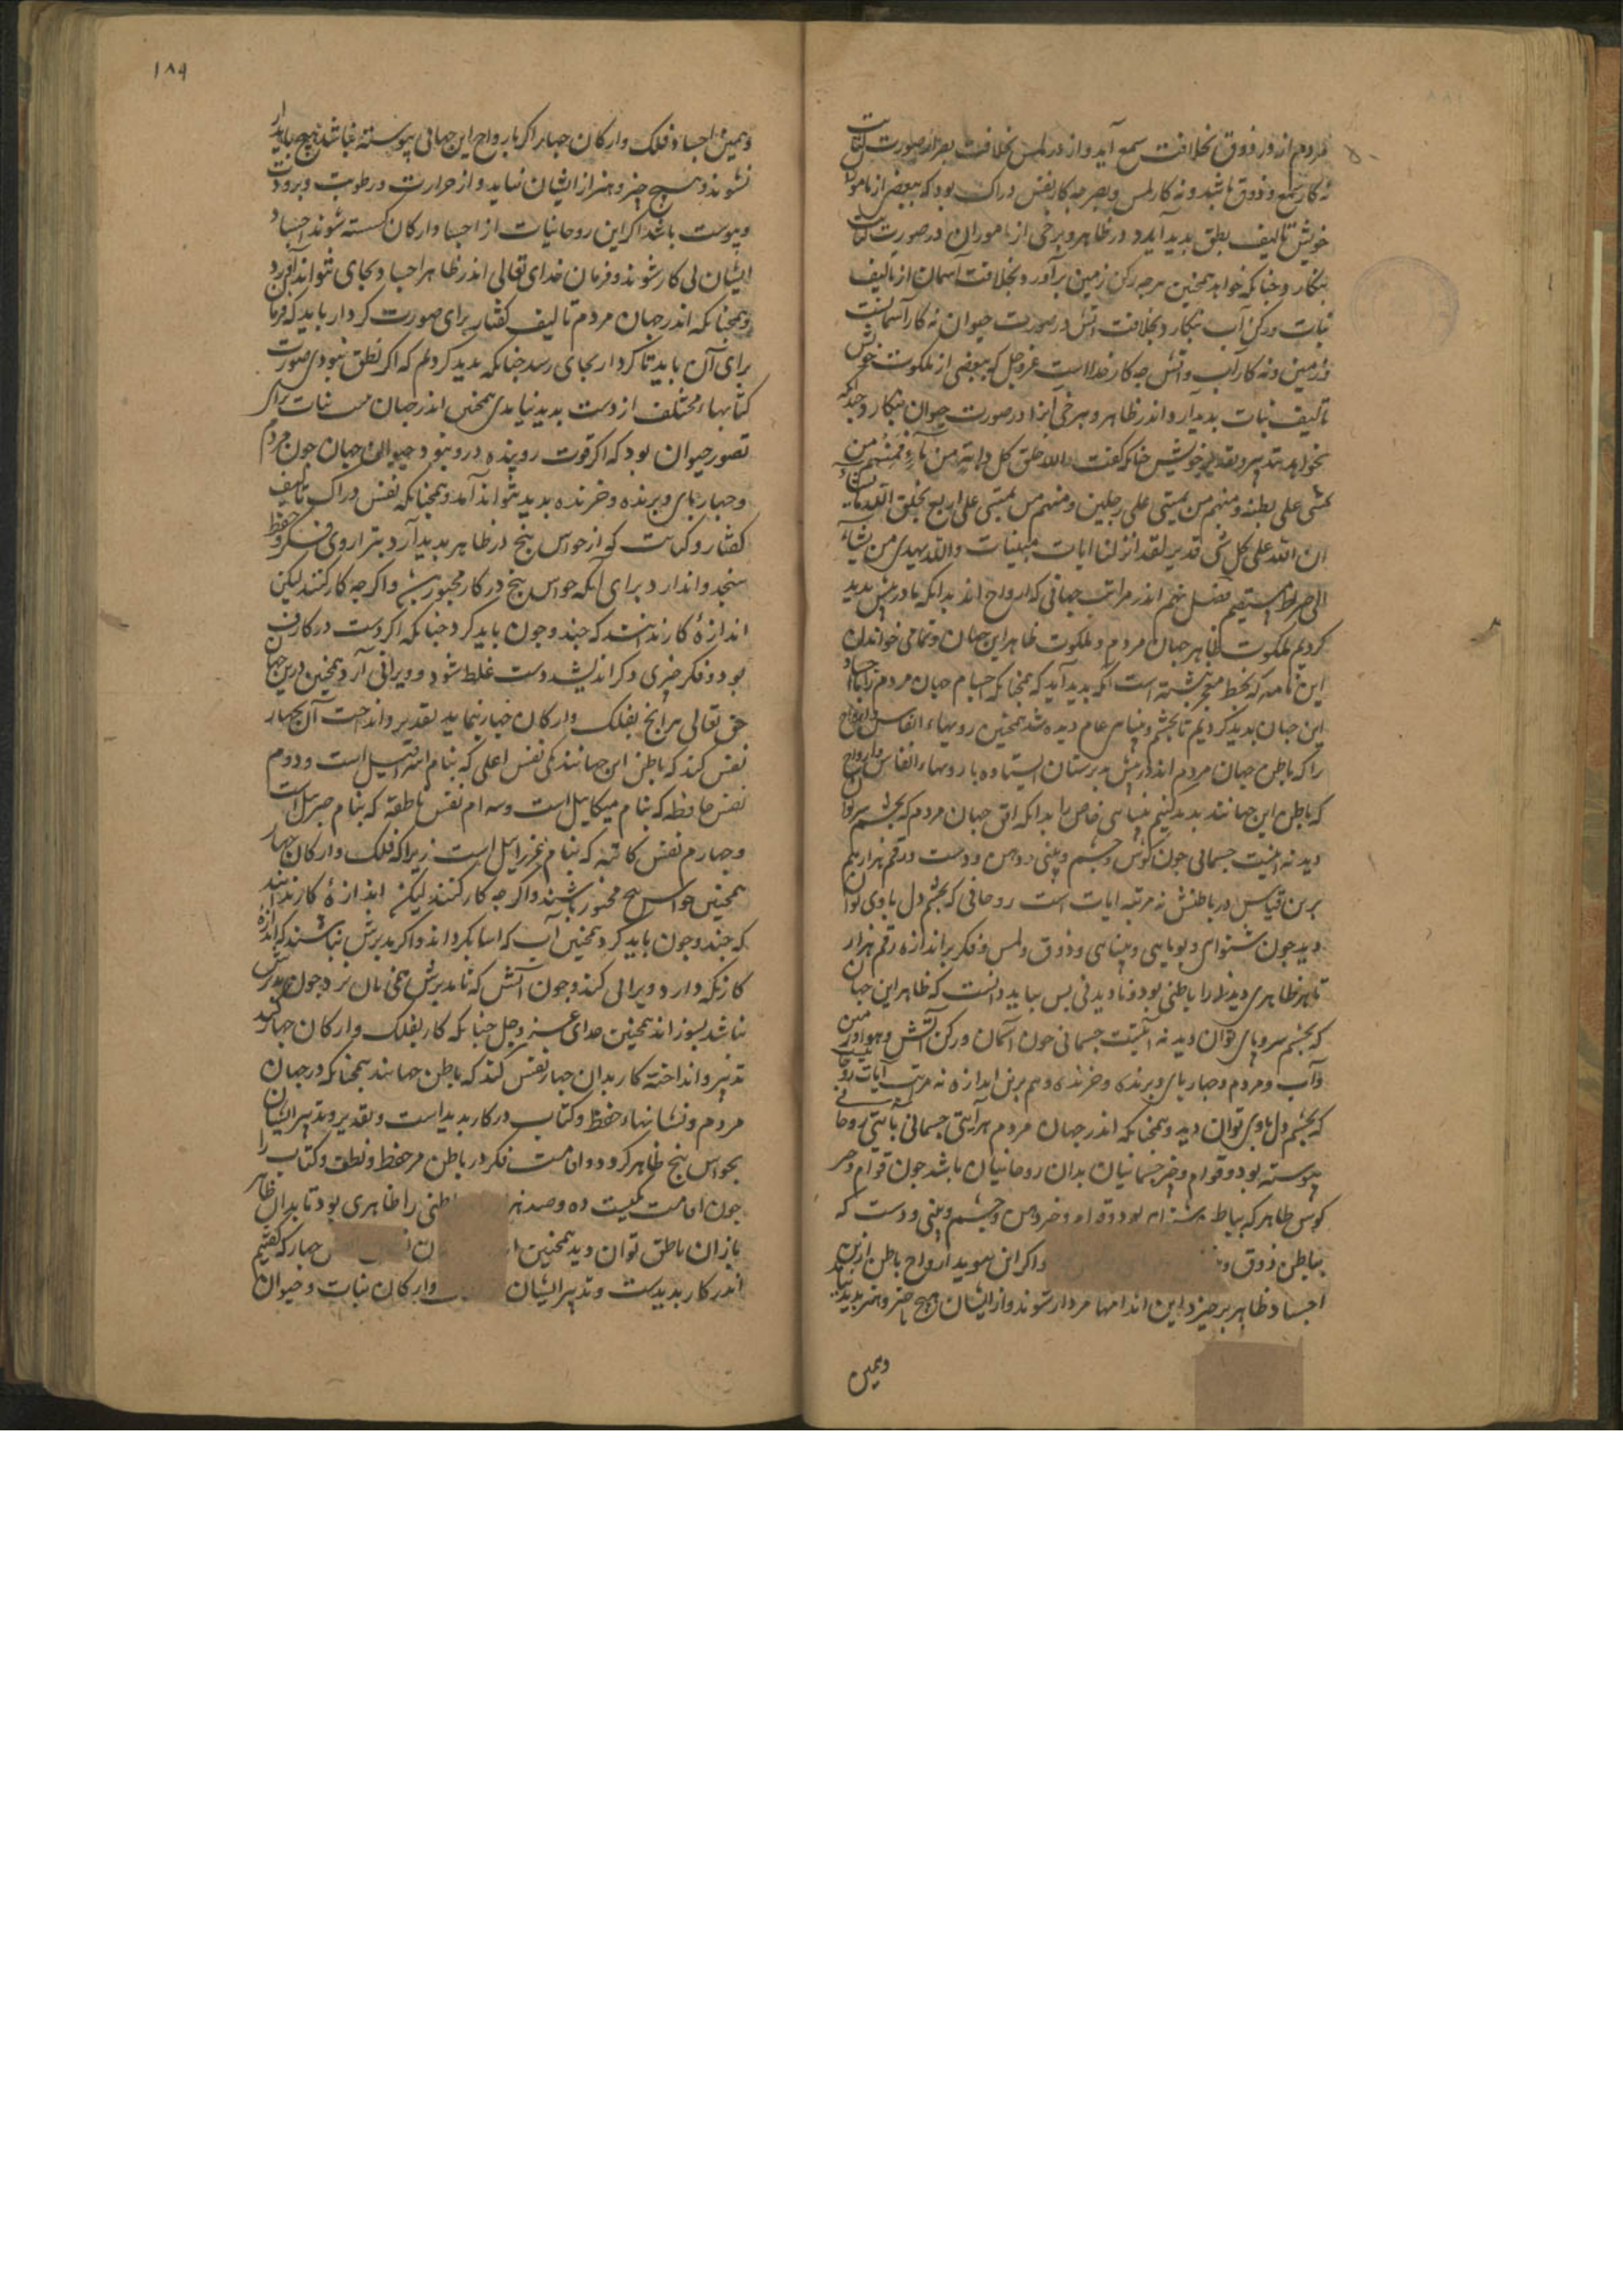 مردم از در ذوق بخلافت سمع آید و از در لمس بخلافت بصر اندر صورت کتابت
نه کار سمع و ذوق باشد و نه کار لمس و بصر چه کار نفس دراک بود که ببعضی از ناموران
خویش تالیف نطق بدید آید و در ظاهر و برخی از ناموران در صورت کتابت
بنکارد چنانکه خواهد همچنین هرچه رکن زمین برآورد بخلافت آسمان از تالیف
نبات و رکن آب بنکارد بخلافت آتش در صورت حیوان نه کار آسمانست
و زمین و نه کار آب و آتش چه کار خداست عز و جل که ببعضی از ملکوت خویش
تالیف نبات بدید آرد اندر ظاهر و ببرخی اندر صورت حیوان بنکارد چندانکه
بخواهد بتدبیر و تقدیر خویش چنانکه کفت والله خلق کل دابة من ماء فمنهم من
یمشی علی بطنه و منهم من یمشی علی رجلین و منهم من یمشی علی اربع یخلق الله ما یشاء
ان الله علی کل شی قدیر لقد انزلنا ایات مبینات والله یهدی من یشاء
الی صراط مستقیم فصل پنجم اندر مراتب جهانی که ارواح اند بدانکه ما در پیش بدید
کردیم ملکوت ظاهر جهان مردم و ملکوت ظاهر این جهان و تمامی خواندن
این نامه که بخط معجز نبشته است آنکه بدید آید که همچنانکه اجسام جهان مردم را با اجساد
این جهان بدید کردیم تا بچشم و بینایی عام دیده شد همچنین رویهاء انفاس و ارواح
را که باطن جهان مردم اند در پیش دبرستان ایستاده با رویهاء انفاس و ارواح
که باطن این جهانند بدید کنیم بینایی خاص را بدانکه اندر جهان مردم که بچشم سر توان
دید نه اینیت جسمانی چون کوش و چشم و بینی و دهن و دست و رقم هزارهم
برین قیاس در باطنش نه مرتبه ایات است روحانی که بچشم دل با وی توان
دید چون شنوایی و بویایی و بینایی و ذوق و لمس و فکر بر اندازه رقم هزار
تا هر ظاهری دیدنی را باطنی بود نادیدنی پس بباید دانست که ظاهر این جهان
که بچشم سر و پای توان دید نه آیتیت جسمانی چون آسمان و رکن آتش و هوا و زمین
و آب و مردم و چهارپای و پرنده و خزنده و هم برین اندازه نه مرتبت آیات روحانیست
که بچشم دل با وی توان دید و همچنانکه اندر جهان مردم هر آیتی جسمانی با آیتی روحانی
پیوسته بود و قوام و خیر جسمانیان بدان روحانیان باشد چون قوام و خیر
کوش ظاهر که بباطن شنوای بود و قوام و خیر دهن و چشم و بینی و دست که
بباطن ذوق و
و اکر این پیوید ارواح باطن ازین
اجساد ظاهر برخیزد این اندامها مردار شوند و از ایشان هیچ خیر و هنر بدید نیاید
وهمین
۱۸۹
وهمین اجساد فلک و ارکان چهار اکر با رواح این جهانی پیوسته نباشند هیچ بایدار
نشوند و هیچ خیر و هنر از ایشان نیاید و از حرارت و رطوبت و برودت
و یبوست باشد اکر این روحانیات از اجساد ارکان کسسته شوند اجساد
ایشان بی کار شوند و فرمان خدای تعالی اندر ظاهر اجساد بجای نتوانند آورد
و همچنانکه اندر جهان مردم تالیف کفتار برای صورت کردار باید که فرمان
برای آن باید تا کردار بجای رسد چنانکه بدید کردیم که اکر نطق نبودی صورت
کتابهاء مختلف از دست بدید نیایدی همچنین اندر جهان مهین نبات برای
تصور حیوان بود که اکر قوت روینده درو نبود حیوانی جهان چون مردم
و چهارپای و پرنده و خزنده بدید نتواند آمد و همچنانکه نفس دراک تالیف
کفتار و کتابت کو از حواس پنج در ظاهر بدید آرد بترازوی فکر و حفظ
سنجد و اندازد برای آنکه حواس پنج در کار مجبورند و اکرچه کار کنند لیکن
اندازهٔ کار ندانند که چند و چون باید کرد چنانکه اکر دست در کار فن
بود و فکر چیزی دکر اندیشد دست غلط شود و ویرانی آرد همچنین درین جهان
حق تعالی هر آنچ بفلک و ارکان چهار نماید تقدیر و انداخت آن بچهار
نفس کند که باطن این جهانند یکی نفس اعلی که بنام اسرافیل است و دوم
نفس حافظه که بنام میکاییل است و سه ام نفس ناطقه که بنام جبریل است
و چهارم نفس کاتبه که بنام عزراییل است زیراکه فلک و ارکان چهار
همچنین حواس پنج مجبور باشند و اکرچه کار کنند لیکن اندازهٔ کار ندانند
که چند و چون باید کرد همچنین آب که آسیا بکرداند و اکر مدبرش نباشد که اندازه
کار نکه دارد ویرانی کند و چون آتش که تا مدبرش همی نان پزد چون مدبرش
نباشد بسوزاند همچنین خدای عز و جل چنانکه کار بفلک و ارکان چهار کند
تدبیر و انداخته کار بدان چهار نفس کند که باطن جهانند همچنانکه در جهان
مردم و نشانیهاء حفظ و کتاب در کار بدید است و تقدیر و تدبیر ایشان
بحواس پنج ظاهر کرد و اقامت فکر در باطن مر حفظ و نطق و کتاب را
چون اقامت بیست ده و صد هزار باطنی را ظاهری بود تا بدان ظاهر
بازان ناطق توان دید همچنین چهار که کفتیم
اندر کار بدیدست و تدبیر ایشان و ارکان نبات و حیوان